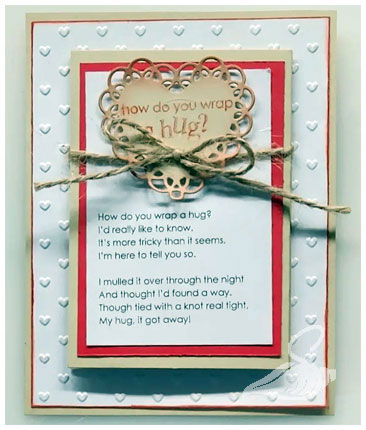 how do you wrap
a hug?
How do you wrap a hug?
I'd really like to know.
It's more tricky than it seems.
I'm here to tell you so.
I mulled it over through the night
And thought I'd found a way.
Though tied with a knot real tight,
My hug, it got away!